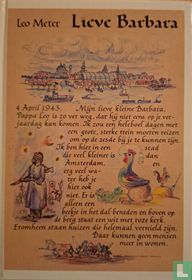 Leo Meter Lieve Barbara
4 April 1943. Mijn lieve kleine Barbara.
Pappa Leo is zo ver weg, dat hij niet eens op je ver-
jaardag kan komen. Ik zou een heleboel dagen met
een grote, sterke trein moeten reizen
om op de zesde bij je te kunnen zijn.
Ik ben hier in een stad
die veel kleiner is dan
Amsterdam, en
erg veel wa-
ter heb je
hier ook
niet. Er is
alleen een
beekje in het dal beneden en boven op
de berg staat een wit met roze kerk.
Eromheen staan huizen die helemaal vernield zijn.
Daar kunnen geen mensen
meer in wonen.